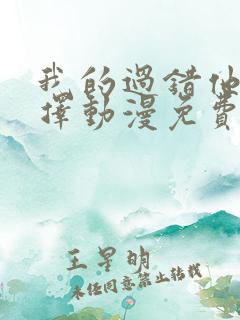 我的過錯他
擇動漫免費
王星明
未经同意禁止转载